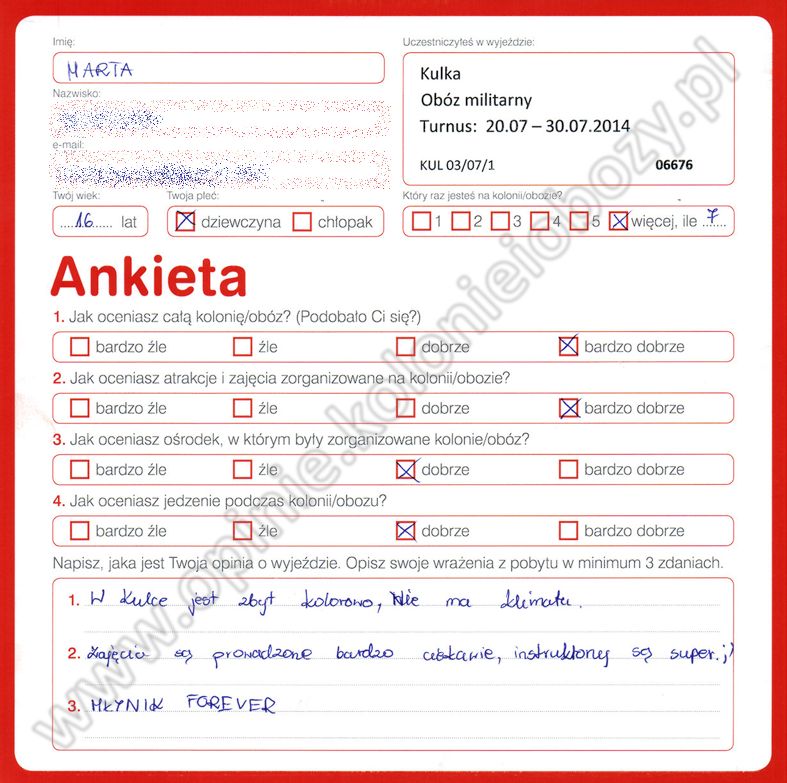 Imię:
Uczestniczyłeś w wyjeździe:
MARTA
Kulka
Obóz militarny
Turnus: 20.07 – 30.07.2014
KUL 03/07/1 06676
Nazwisko:
e-mail:
Twój wiek:
Twoja płeć:
Który raz jesteś na kolonii/obozie?
....16...... lat
dziewczyna chłopak
1 2 3 4 5 więcej, ile ..7.....
Ankieta
1. Jak oceniasz całą kolonię/obóz? (Podobało Ci się?)
bardzo źle źle dobrze bardzo dobrze
2. Jak oceniasz atrakcje i zajęcia zorganizowane na kolonii/obozie?
bardzo źle źle dobrze bardzo dobrze
3. Jak oceniasz ośrodek, w którym były zorganizowane kolonie/obóz?
bardzo źle źle dobrze bardzo dobrze
4. Jak oceniasz jedzenie podczas kolonii/obozu?
bardzo źle źle dobrze bardzo dobrze
Napisz, jaka jest Twoja opinia o wyjeździe. Opisz swoje wrażenia z pobytu w minimum 3 zdaniach.
1. W Kulce jest zbyt kolorowo, Nie ma klimatu.
2. Zajęcia są prowadzone bardzo ciekawie, instruktorzy są super. ;)
3. MŁYNIK FOREVER
www.opinie.kolonieiobozy.pl